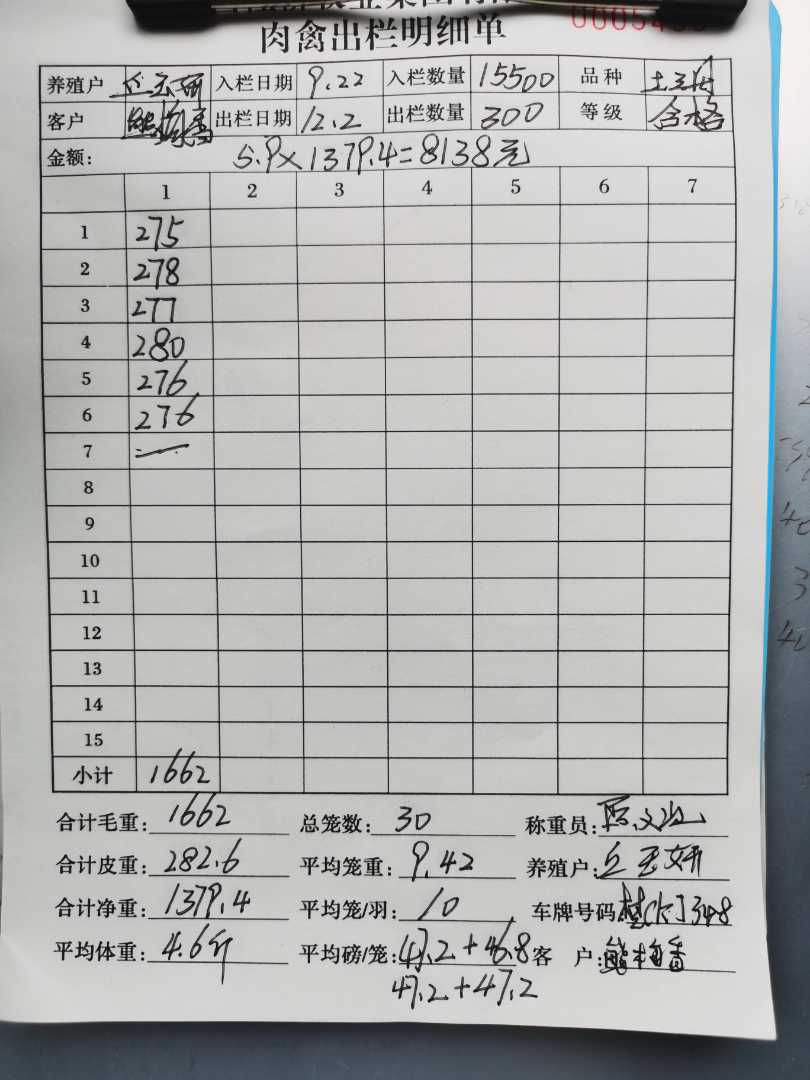 肉禽出栏明细单
养殖户 丘玉妍 入栏日期 9.22 入栏数量 15500 品种
客户 熊梅香 出栏日期 12.2 出栏数量 300 等级 合格
金额: 5.9×1379.4=8138元
1 2 3 4 5 6 7
1 275
2 278
3 277
4 280
5 276
6 276
7
8
9
10
11
12
13
14
15
小计 1662
合计毛重: 1662 总笼数: 30 称重员:
合计皮重: 282.6 平均笼重: 9.42 养殖户: 丘玉妍
合计净重: 1379.4 平均笼/羽: 10 车牌号码
平均体重: 4.6斤 平均磅/笼: 47.2+46.8 客 户: 熊梅香
47.2+47.2